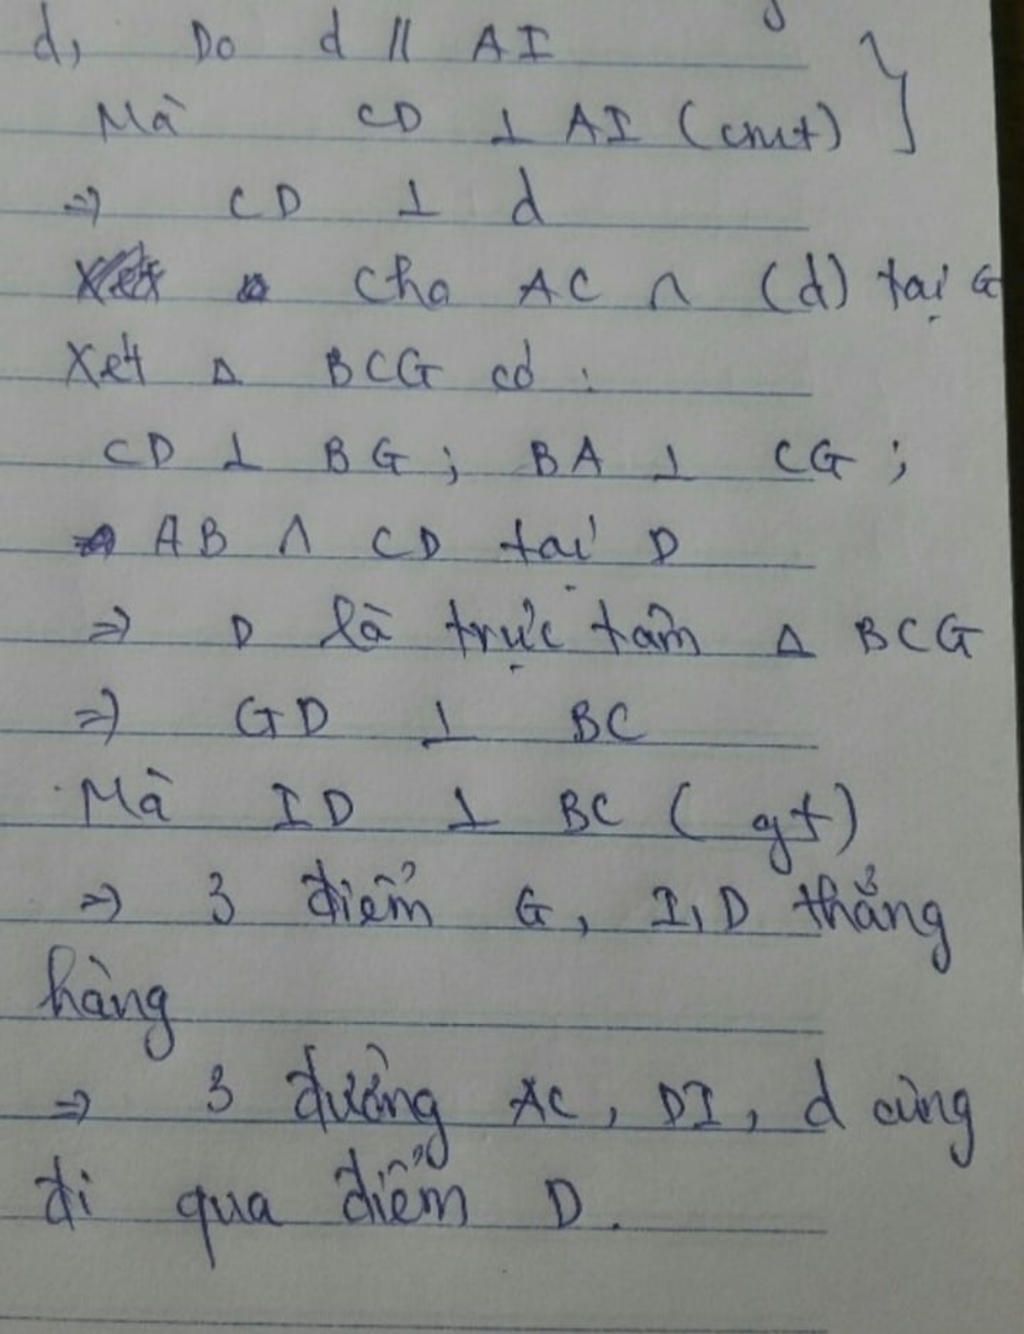 d, Do d // AI
Mà CD ⊥ AI (cmt) }
⇒ CD ⊥ d
Cho AC ∩ (d) tại G
Xét Δ BCG có :
CD ⊥ BG ; BA ⊥ CG ;
AB ∩ CD tại D
⇒ D là trực tâm Δ BCG
⇒ GD ⊥ BC
Mà ID ⊥ BC ( gt)
⇒ 3 điểm G, I, D thẳng
hàng
⇒ 3 đường AC, DI, d cùng
đi qua điểm D.